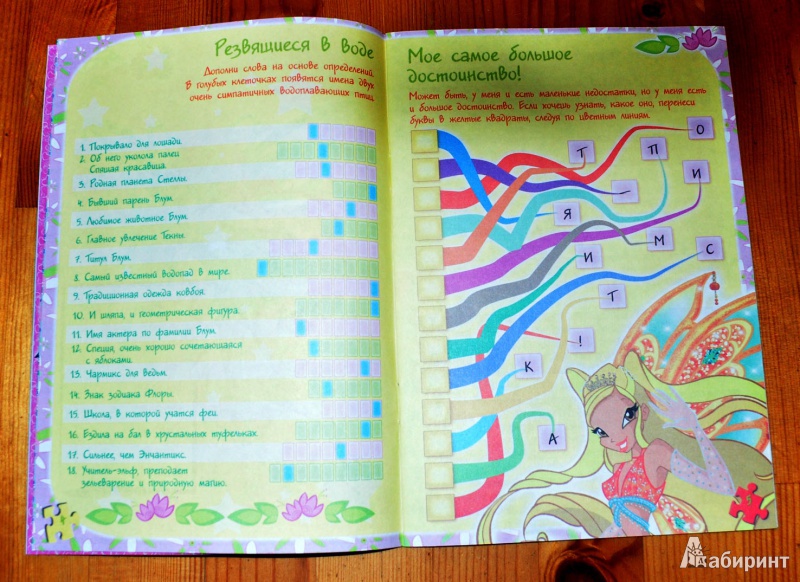 Резвящиеся в воде
Дополни слова на основе определений.
В голубых клеточках появятся имена двух
очень симпатичных водоплавающих птиц.
1. Покрывало для лошади.
2. Об него уколола палец
Спящая красавица.
3. Родная планета Стеллы.
4. Бывший парень Блум.
5. Любимое животное Блум.
6. Главное увлечение Текны.
7. Титул Блум.
8. Самый известный водопад в мире.
9. Традиционная одежда ковбоя.
10. И шляпа, и геометрическая фигура.
11. Имя актера по фамилии Блум.
12. Специя, очень хорошо сочетающаяся
с яблоками.
13. Чармикс для ведьм.
14. Знак зодиака Флоры.
15. Школа, в которой учатся феи.
16. Ездила на бал в хрустальных туфельках.
17. Сильнее, чем Энчантикс.
18. Учитель-эльф, преподает
зельеварение и природную магию.
Мое самое большое
достоинство!
Может быть, у меня и есть маленькие недостатки, но у меня есть
и большое достоинство. Если хочешь узнать, какое оно, перенеси
буквы в желтые квадраты, следуя по цветным линиям.
О
Т
П
И
-
Я
М
И
С
Т
!
К
А
Лабиринт